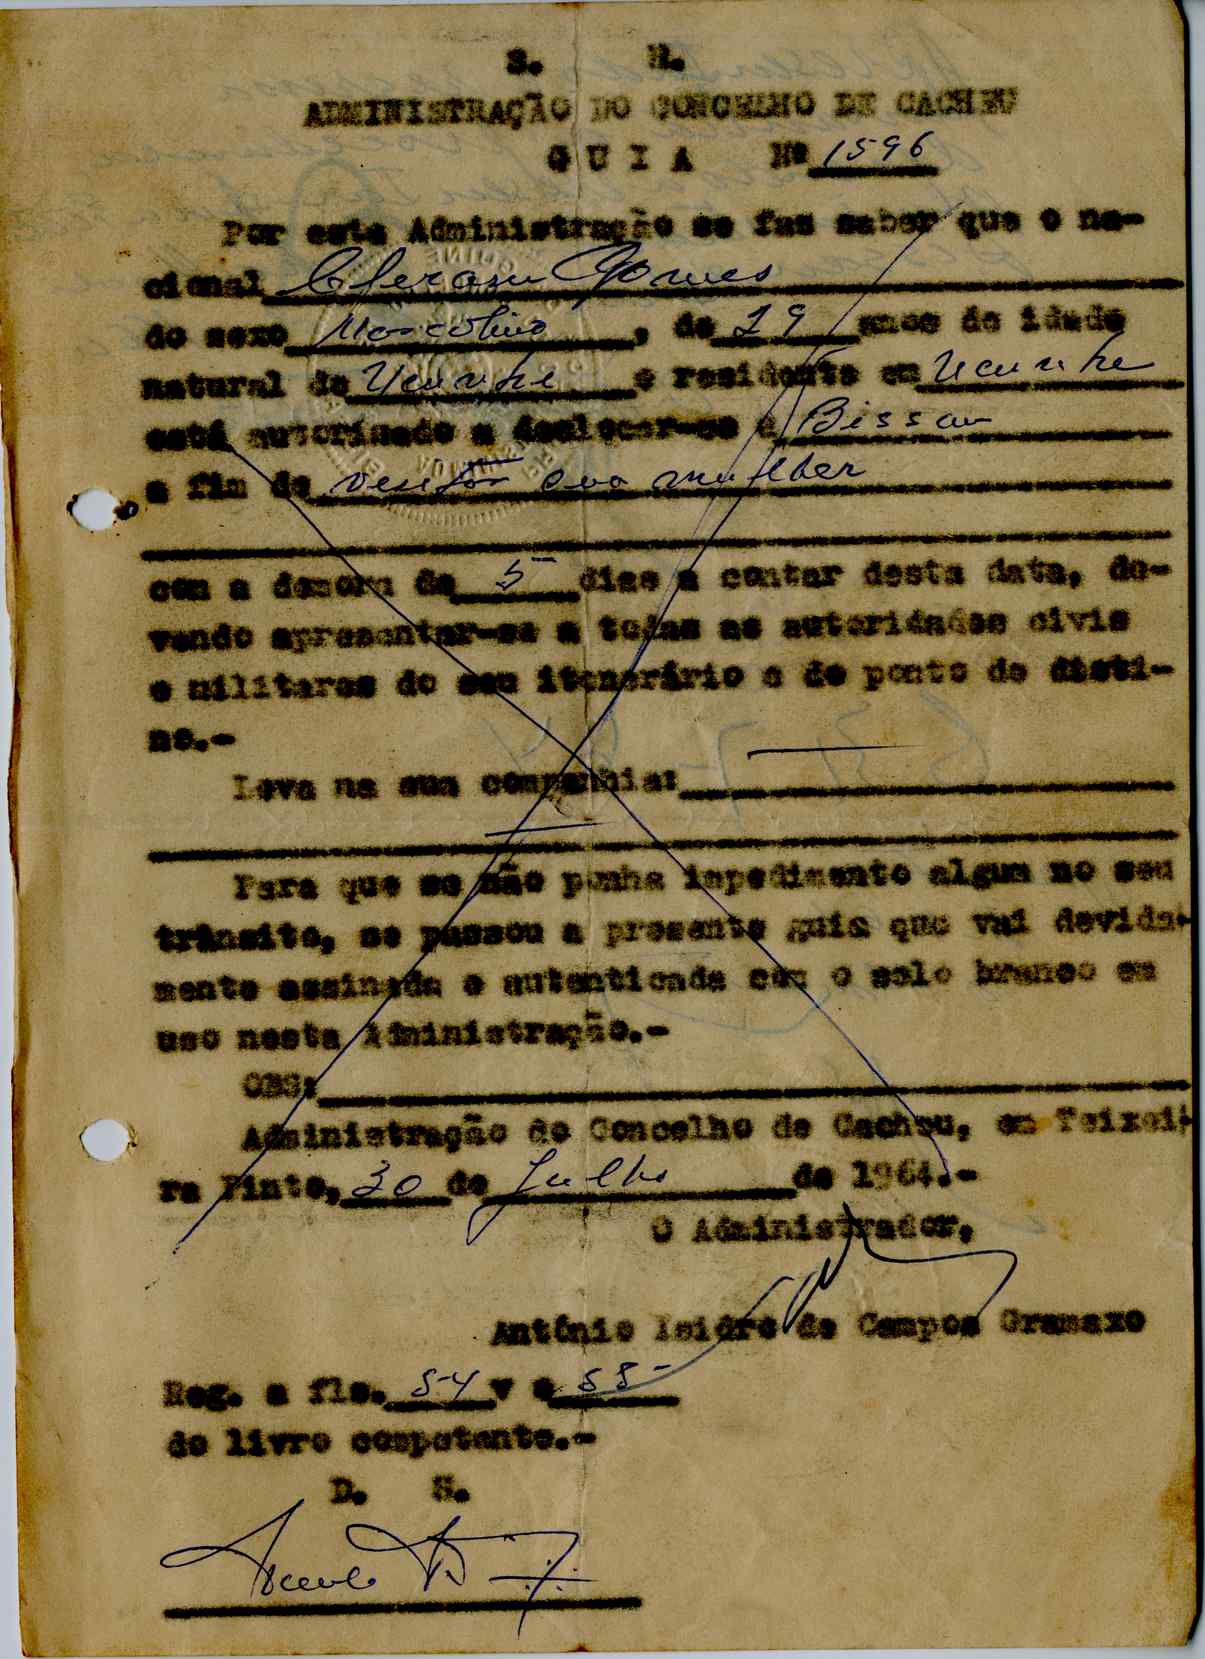 S. R.
ADMINISTRAÇÃO DO CONCELHO DE CACHEU
G U I A Nº 1596
Por esta Administração se faz saber que o na-
cional Gomes
do sexo Masculino, de 29 anos de idade
natural de Ucunhe e residente em Ucunhe
está autorizado a deslocar-se a Bissau
a fim de visitar sua mulher
com a demora de 5 dias a contar desta data, de-
vendo apresentar-se a todas as autoridades civis
e militares do seu itenerário e do ponto de disti-
no.-
Leva na sua companhia:
Para que se não ponha impedimento algum no seu
trânsito, se passou a presente guia que vai devida-
mente assinada e autenticada com o selo branco em
uso nesta Administração.-
OBS:
Administração do Concelho de Cacheu, em Teixei-
ra Pinto, 30 de Julho de 1964.-
O Administrador,
António Isidro de Campos Gramaxo
Reg. a fls. 54 v e 55
do livro competente.-
D. S.